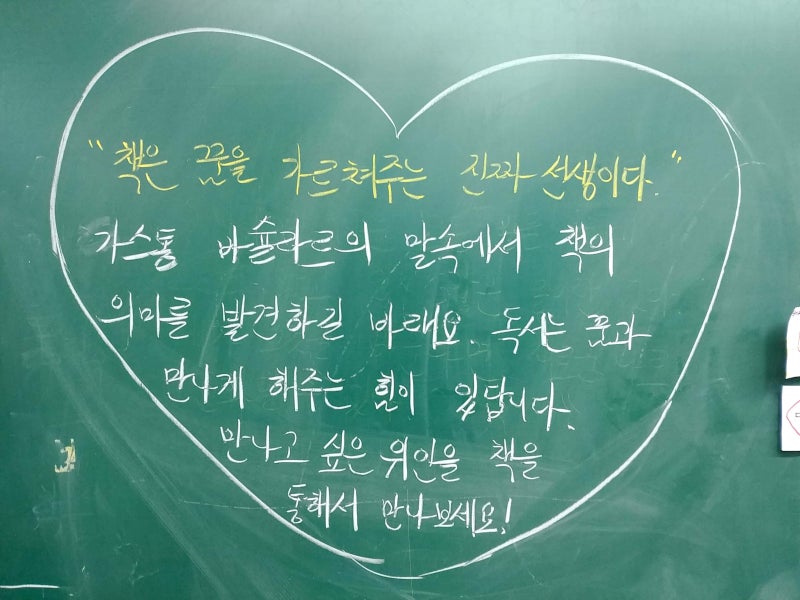 "책은 꿈을 가르쳐주는 진짜 선생이다."
가스통 바슐라르의 말속에서 책의
의미를 발견하길 바래요. 독서는 꿈과
만나게 해주는 힘이 있답니다.
만나고 싶은 위인을 책을
통해서 만나보세요!